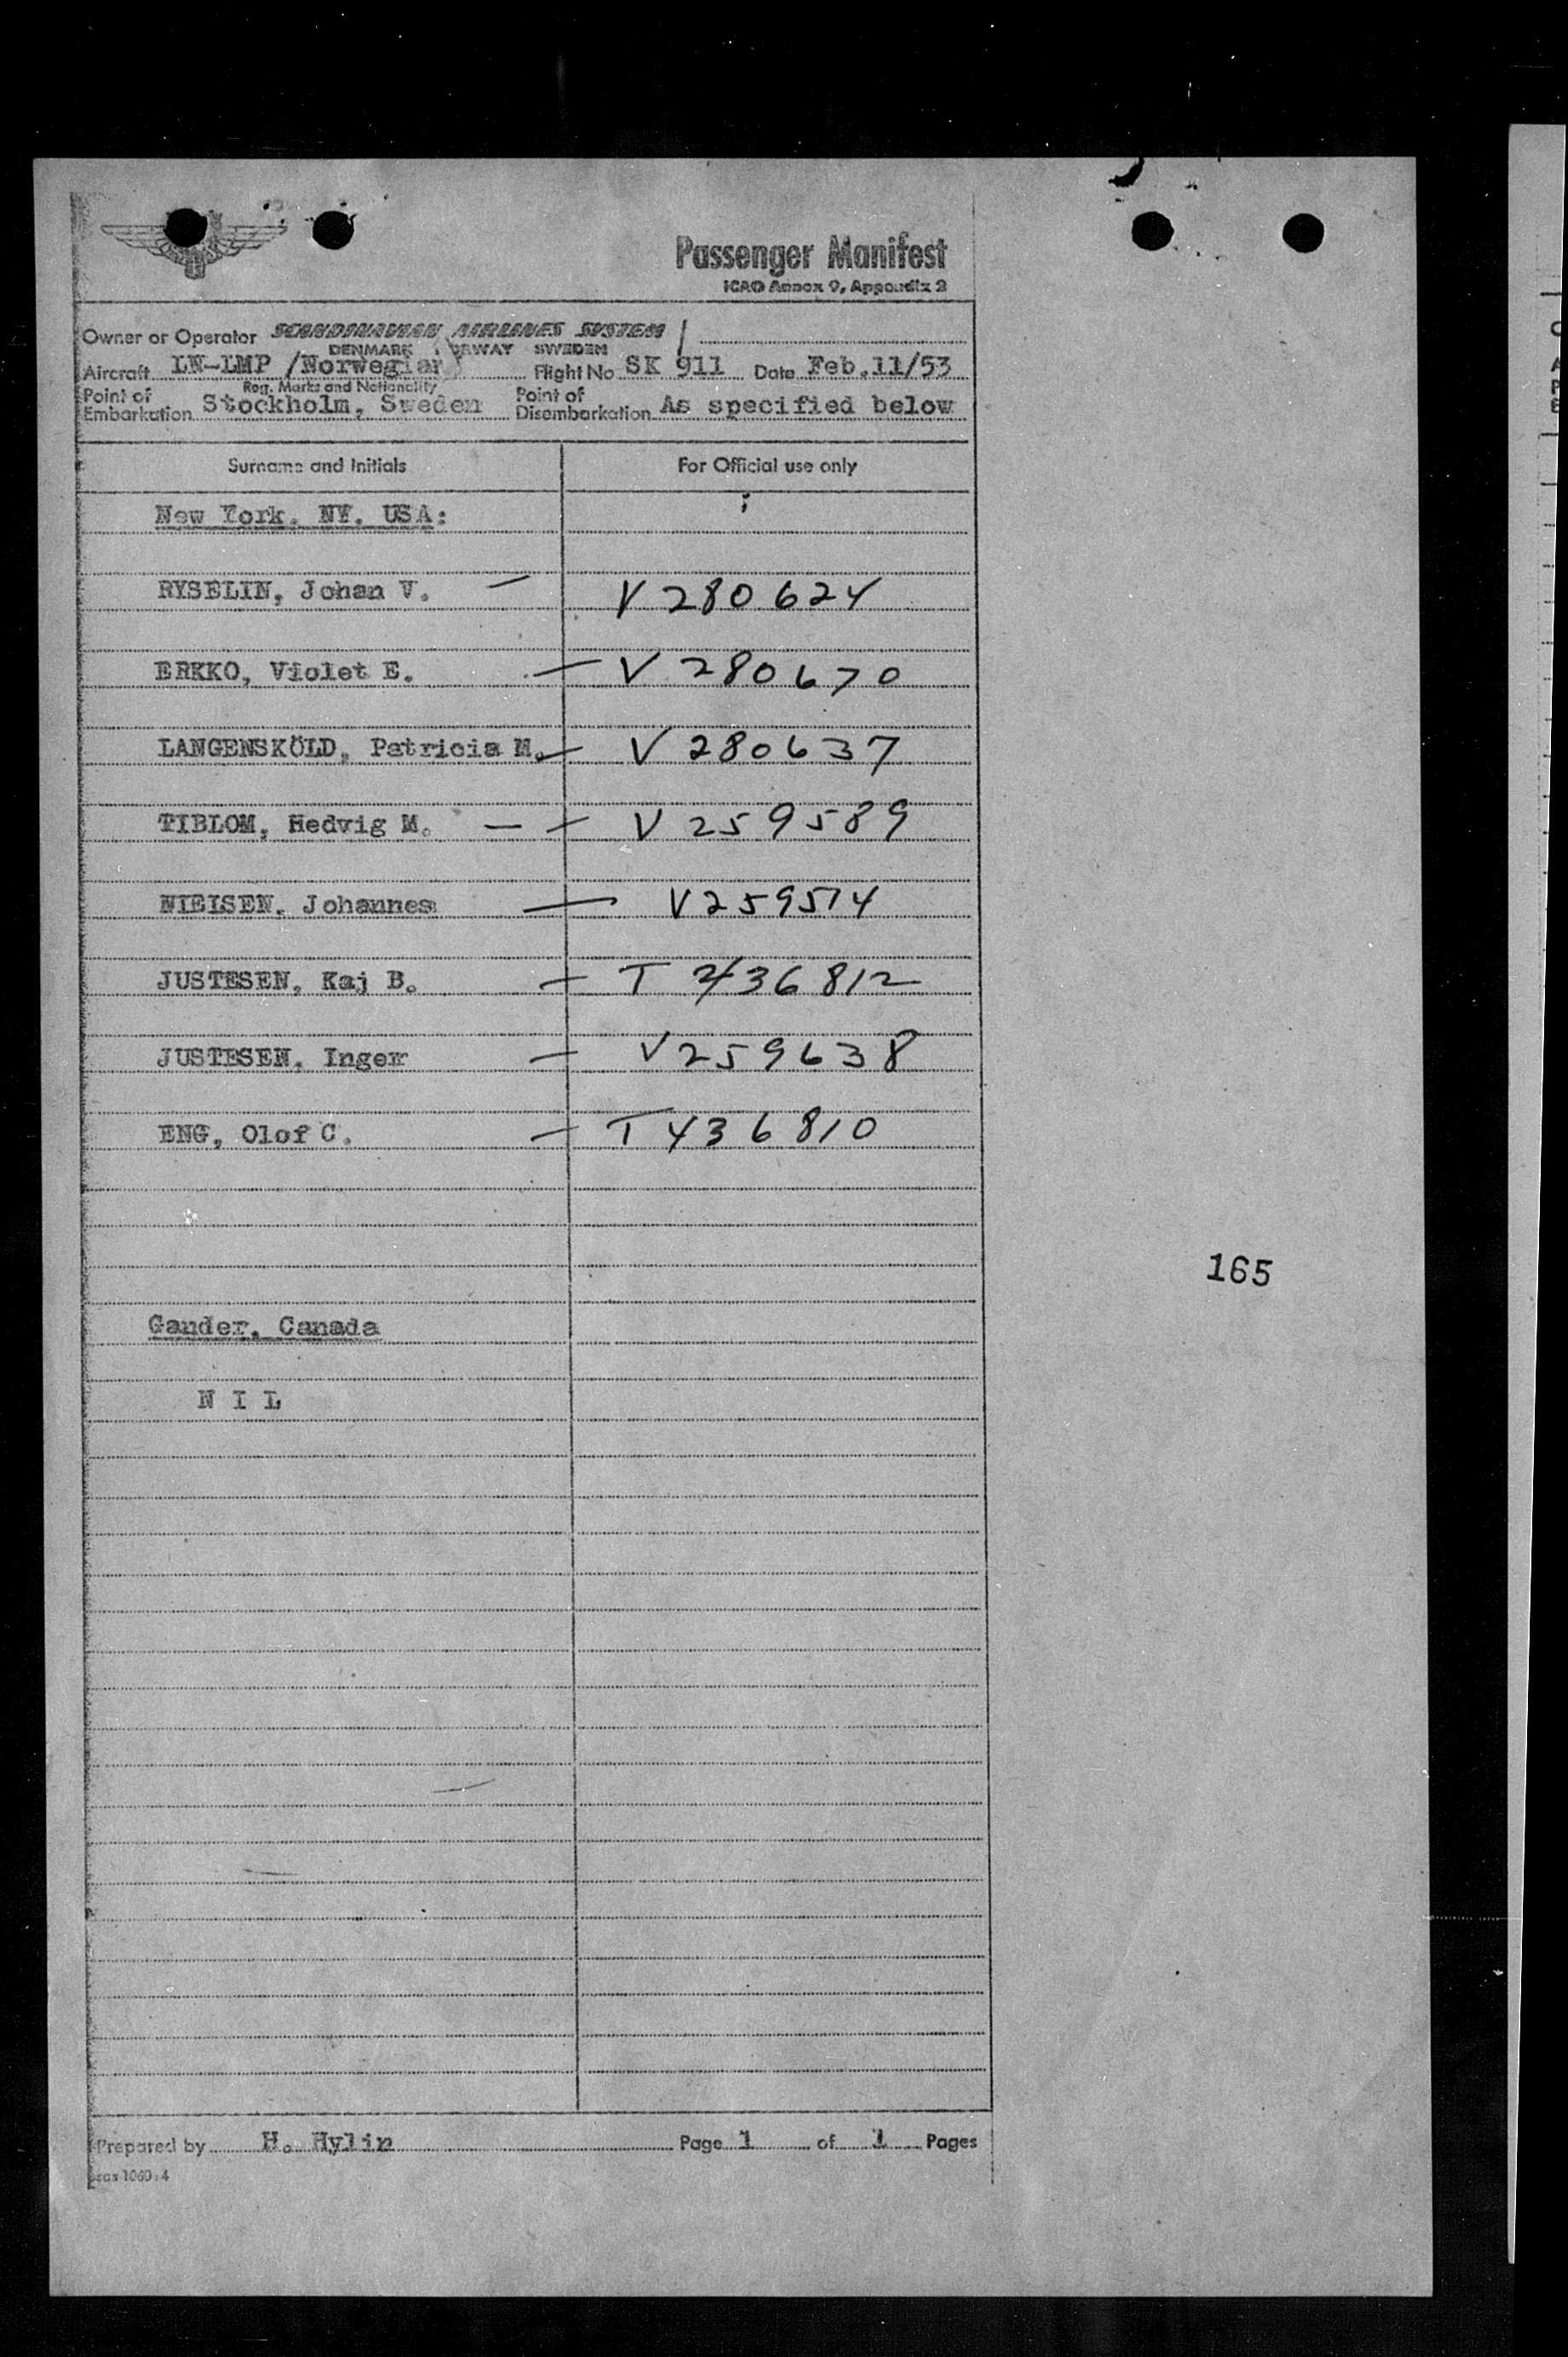 Passenger Manifest
ICAO Annex 9, Appendix 2
Owner or Operator SCANDINAVIAN AIRLINES SYSTEM
DENMARK NORWAY SWEDEN
Aircraft LN-LMP /Norwegian Flight No SK 911 Date Feb.11/53
Reg. Marks and Nationality
Point of Embarkation Stockholm, Sweden Point of Disembarkation As specified below
Surname and Initials For Official use only
New York, NY, USA:
RYSELIN, Johan V. — V 280624
ERKKO, Violet E. — V 280670
LANGENSKÖLD, Patricia M. — V 280637
TIBLOM, Hedvig M. — — V 259589
NIELSEN, Johannes — V259514
JUSTESEN, Kaj B. — T 436812
JUSTESEN, Inger — V259638
ENG, Olof C. — T436810
165
Gander, Canada
N I L
Prepared by H. Hylin Page 1 of 1 Pages
sas 1060.4